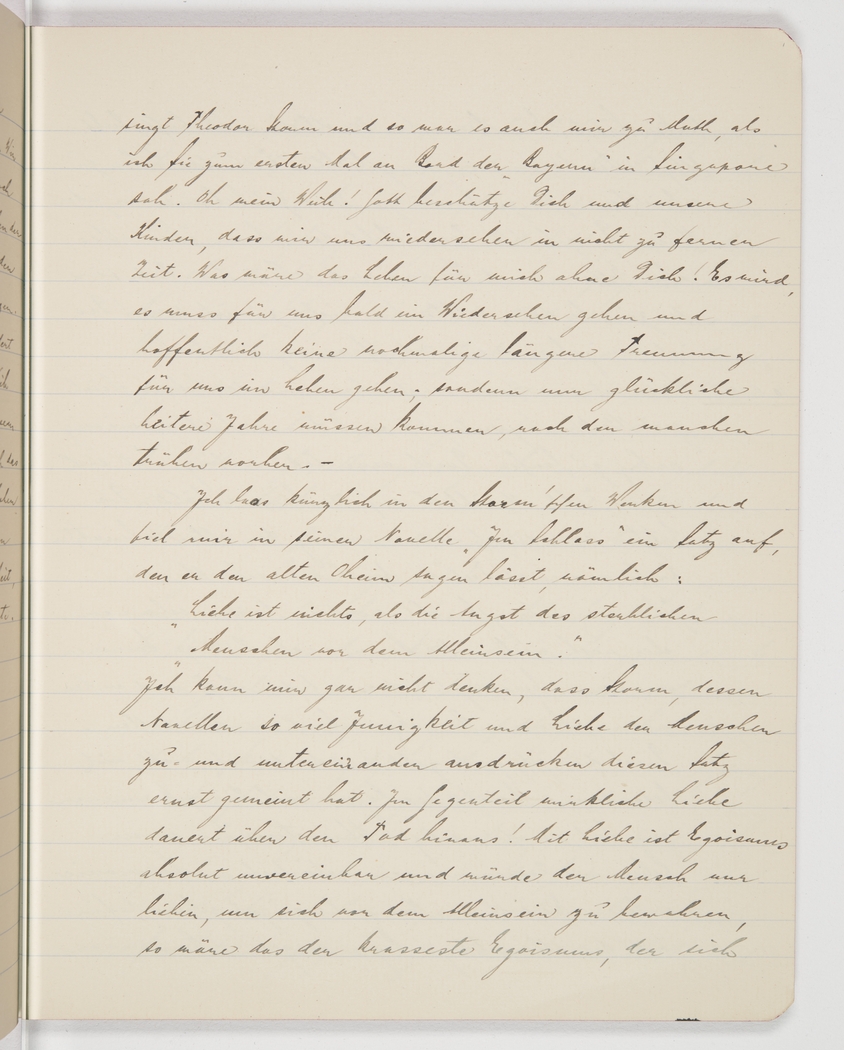 singt Theodor Storm und so war es auch mir zu Muth, als
ich Sie zum ersten Mal an Bord der „Bayern" in Singapore
sah. Oh mein Weib! Gott beschütze Dich und unsere
Kinder, dass wir uns wiedersehen in nicht zu ferner
Zeit. Was wäre das Leben für mich ohne Dich! Es wird,
es muss für uns bald ein Wiedersehen geben und
hoffentlich keine nochmalige längere Trennung
für uns im Leben geben; sondern nur glückliche
heitere Jahre müssen kommen, nach den manchen
trüben vorher. –
Ich las kürzlich in den Storm'schen Werken und
fiel mir in seiner Novelle „Im Schloss" ein Satz auf,
den er den alten Oheim sagen lässt, nämlich:
„Liebe ist nichts, als die Angst des sterblichen
„Menschen vor dem Alleinsein."
Ich kann mir gar nicht denken, dass Storm, dessen
Novellen so viel Innigkeit und Liebe der Menschen
zu- und untereinander ausdrücken diesen Satz
ernst gemeint hat. Im Gegenteil wirkliche Liebe
dauert über den Tod hinaus! Mit Liebe ist Egoismus
absolut unvereinbar und würde der Mensch nur
lieben, um sich vor dem Alleinsein zu bewahren,
so wäre das der krasseste Egoismus, der sich